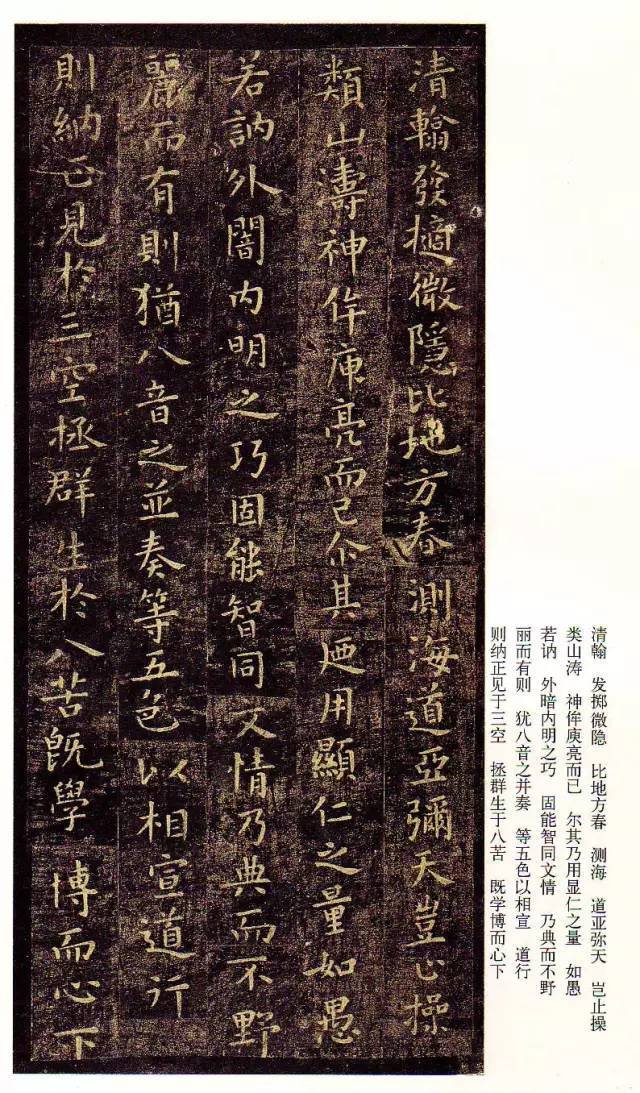 清翰發擿微隱比地方春測海道亞彌天豈止操
類山濤神侔庾亮而已尒其迺用顯仁之量如愚
若訥外闇内明之巧固能智同文情乃典而不野
麗而有則猶八音之並奏等五色以相宣道行
則納正見於三空拯群生於八苦旣學博而心下
清翰　发掷微隐　比地方春　测海　道亚弥天　岂止操
类山涛　神侔庾亮而已　尔其乃用显仁之量　如愚
若讷　外暗内明之巧　固能智同文情　乃典而不野
丽而有则　犹八音之并奏　等五色以相宣　道行
则纳正见于三空　拯群生于八苦　既学博而心下